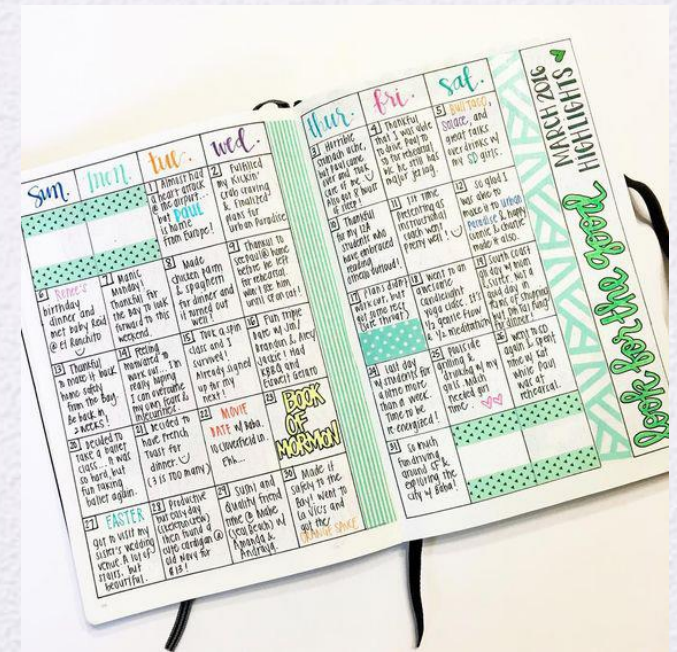 sun.
mon.
tue.
wed.
1 Almost had
a heart attack
@ the airport...
but PAUL
is home
from Europe!
2 Fulfilled
my Kickin'
Crab craving
& finalized
plans for
Urban Paradise
6 Renee's
birthday
dinner and
met baby Reid
@ El Ranchito
7 Manic
Monday!
Thankful for
the day to look
forward to this
weekend.
8 Made
chicken parm
& spaghetti
for dinner and
it turned out
well!
9 Thankful to
see Paul @ home
before he left
for rehearsal.
won't see him
until
13 Thankful
to make it back
home safely
from the Bay.
Be back in
2 weeks!
14 Feeling
motivated to
work out... I'm
really hoping
I can overcome
my own fears &
15 Took a spin
class and I
survived!
Already signed
up for my
next!
16 Fun triple
date w/ Jim/
Brandon & Alex/
Jackie! Had
BBQ and
Gelato
20 Decided to
take a ballet
class... it was
so hard, but
fun taking
ballet again.
21 Decided to
have French
Toast for
dinner.
(3 is too many)
22 MOVIE
DATE w/ Baba.
10 Cloverfield Ln.
Ehh...
23 BOOK
OF
MORMON
27 EASTER
got to visit my
sister's wedding
venue. A lot of
stairs, but
beautiful.
28 Productive
but easy day
(skeleton crew)
then found a
cute cardigan @
Old Navy for
$13!
29 Sushi and
quality friend
time @ Mahe
(Seal Beach) w/
Amanda &
Andraya.
30 Made it
safely to the
Bay! Went to
La Vics and
got the
ORANGE SAUCE
thur.
fri.
sat.
3 Horrible
stomach ache,
but Paul came
over and took
care of me
Also got 8 hours
of sleep!
4 Thankful
that I was able
to go to SD
for rehearsal
b/c he still has
major jetlag.
5
Solace, and
great talks
over drinks w/
my SD girls.
10 Thankful
for my
students who
have embraced
reading
11 1st time
presenting as
instructional
coach went
pretty well!
12 So glad I
was able to
make it to Urban
Paradise & happy
Connie & Charlie
made it also.
17 Plans didn't
work out, but
got some rest
(sore throat)
18 Went to an
awesome
candlelight
yoga class. It's
1/2 gentle flow
1/2 meditation
19 South Coast
all day w/ mom
& sister. Not a
good day in
terms of shopping
but
for dinner!
24 Last day
w/ students for
a little more
than a week.
Time to be
re-energized!
25 Poolside
grilling &
drinking w/ my
girls. Much
needed girl
time.
26 Went to SD
again & spent
time w/ Kat
while Paul
was at
rehearsal.
31 So much
fun driving
around SF &
exploring the
city w/ Baba!
MARCH 2016
HIGHLIGHTS
look for the good